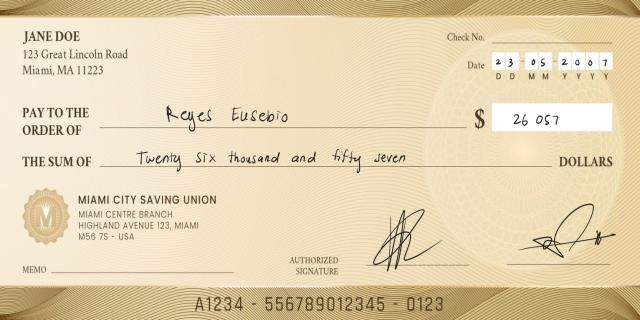 JANE DOE
123 Great Lincoln Road
Miami, MA 11223
Check No.
Date 23 - 05 - 2007
D D M M Y Y Y Y
PAY TO THE ORDER OF Reyes Eusebio $ 26 057
THE SUM OF Twenty six thousand and fifty seven DOLLARS
MIAMI CITY SAVING UNION
MIAMI CENTRE BRANCH
HIGHLAND AVENUE 123, MIAMI
M56 7S - USA
M
MEMO
AUTHORIZED
SIGNATURE
A1234 - 556789012345 - 0123